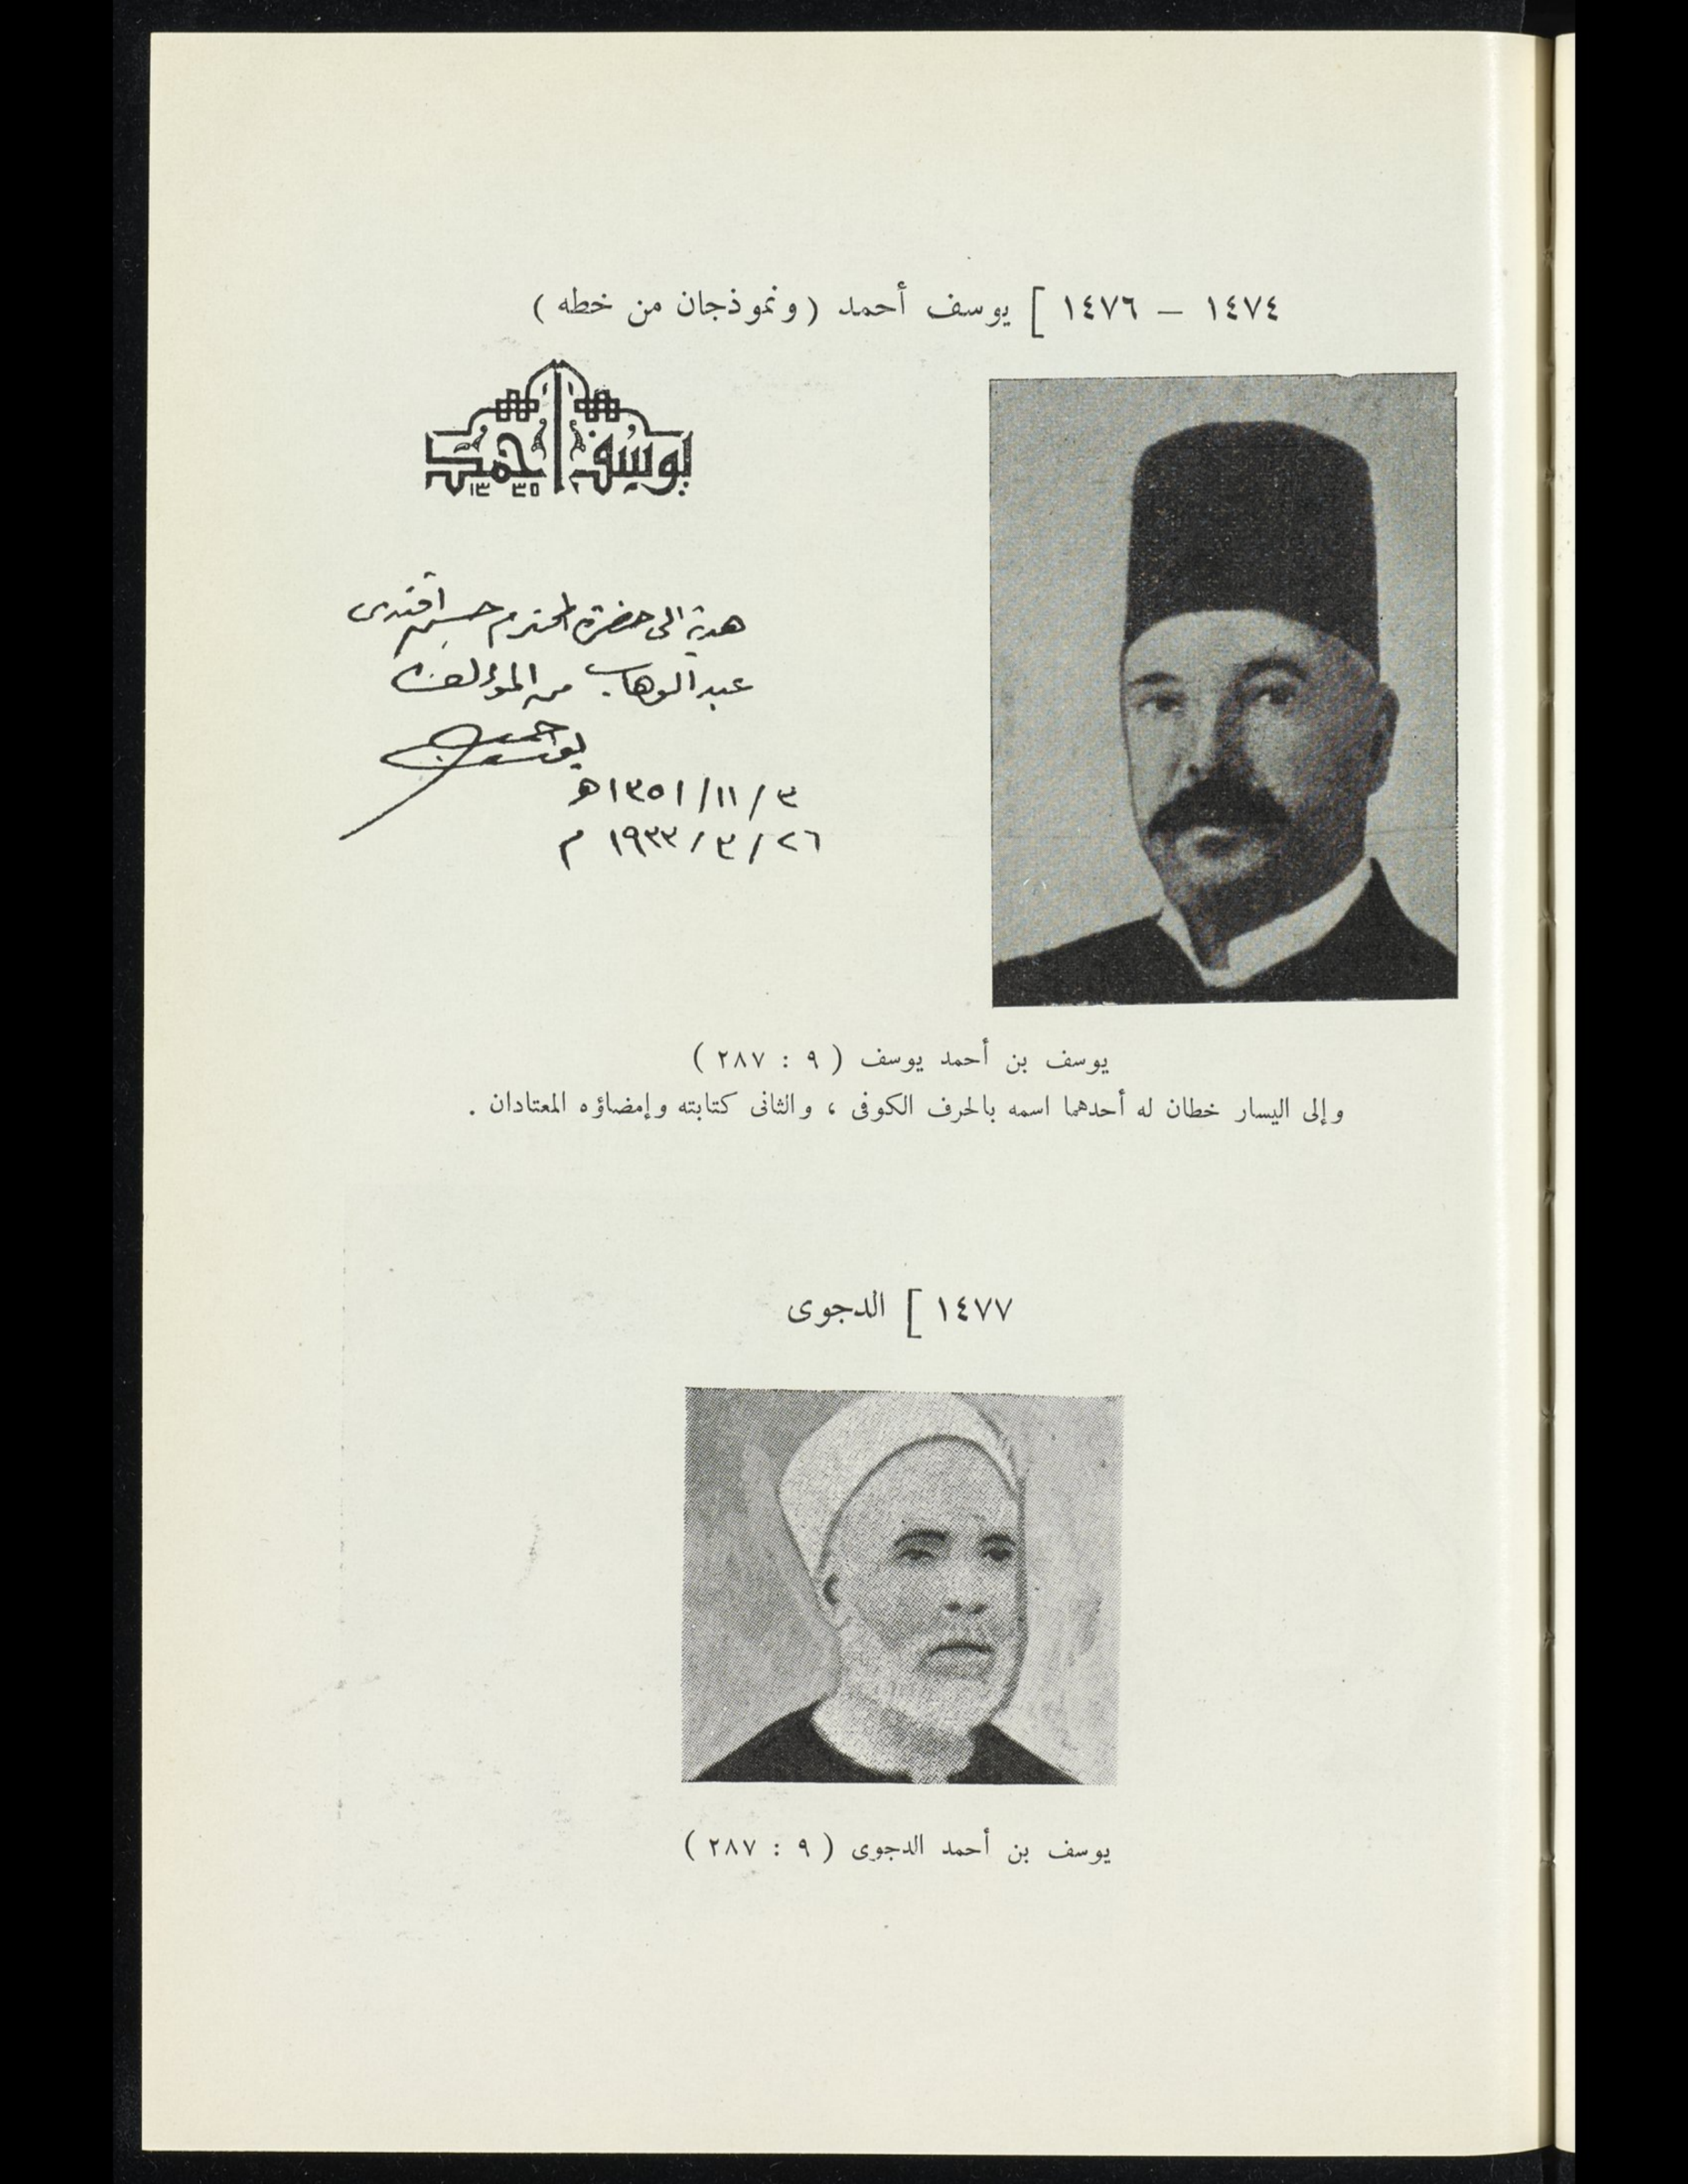 ١٤٧٤ – ١٤٧٦ ] يوسف أحمد ( ونموذجان من خطه )
يوسف احمد
١٣٣٥
هدية الى حضرة المحترم حسن افندى
عبد الوهاب من المؤلف
يوسف احمد
٣ / ١١ / ١٣٥١ ه
٢٦ / ٣ / ١٩٣٣ م
يوسف بن أحمد يوسف ( ٩ : ٢٨٧ )
وإلى اليسار خطان له أحدهما اسمه بالحرف الكوفى ، والثانى كتابته وإمضاؤه المعتادان .
١٤٧٧ ] الدجوى
يوسف بن أحمد الدجوى ( ٩ : ٢٨٧ )